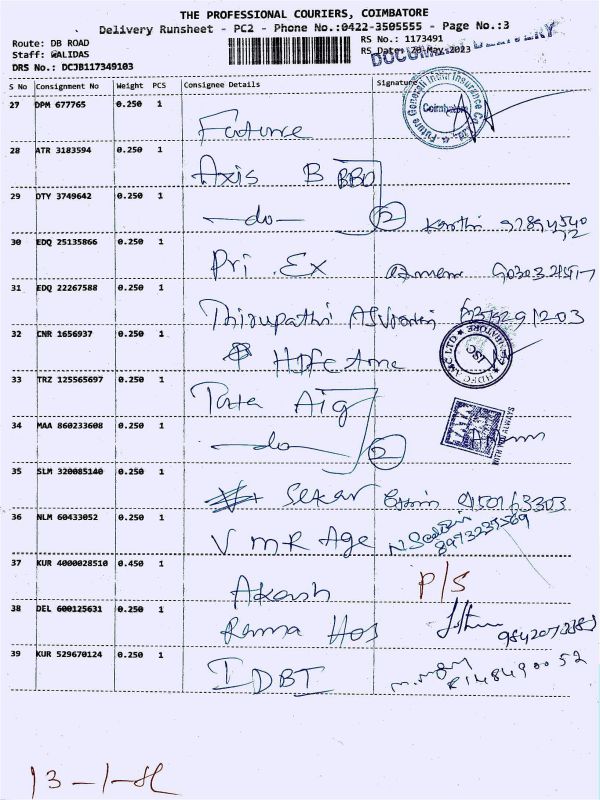 THE PROFESSIONAL COURIERS, COIMBATORE
Delivery Runsheet - PC2 - Phone No.:0422-3505555 - Page No.:3
Route: DB ROAD
RS No.: 1173491
Staff: WALIDAS
RS Date: 20-May-2023
DRS No.: DCJB117349103
S No Consignment No Weight PCS Consignee Details Signature
27 DPM 677765 0.250 1 Future
Future Generali India Insurance Co
Coimbatore
28 ATR 3183594 0.250 1 Axis B BBO
29 DTY 3749642 0.250 1 -do- 2
30 EDQ 25135866 0.250 1 Pri. Ex
31 EDQ 22267588 0.250 1 Thirupathi
32 CNR 1656937 0.250 1 HDFC Amc
HDFC AMC LTD COIMBATORE ISC
33 TRZ 125565697 0.250 1 Tata Aig
34 MAA 860233608 0.250 1 -do- 2
WITH YOU ALWAYS
35 SLM 320085140 0.250 1 Sekar 9150163303
36 NLM 60433052 0.250 1 V M R Age
37 KUR 4000028510 0.450 1 Akash P/S
38 DEL 600125631 0.250 1 Rama Hos
39 KUR 529670124 0.250 1 IDBI